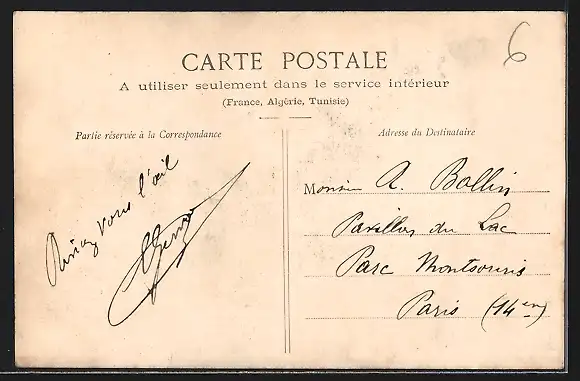 6
CARTE POSTALE
A utiliser seulement dans le service intérieur
(France, Algérie, Tunisie)
Partie réservée à la Correspondance
Adresse du Destinataire
Rincez vous l'œil
Monsieur A. Bollin
Pavillon du Lac
Parc Montsouris
Paris (14em)